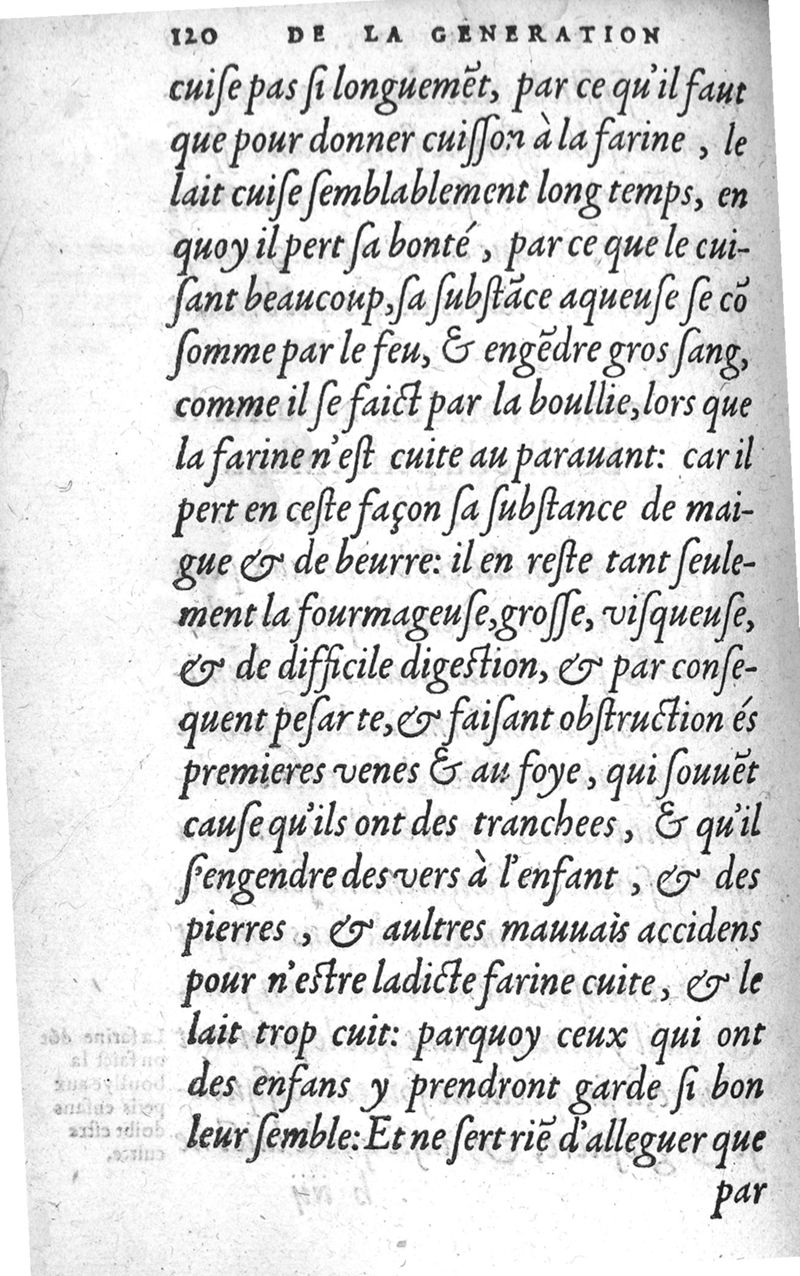 120 DE LA GENERATION
cuiſe pas ſi longuemẽt, par ce qu'il faut
que pour donner cuiſſon à la farine , le
lait cuiſe ſemblablement long temps, en
quoy il pert ſa bonté , par ce que le cui-
ſant beaucoup, ſa ſubſtãce aqueuſe ſe cõ
ſomme par le feu, & engẽdre gros ſang,
comme il ſe faict par la boullie, lors que
la farine n'eſt cuite au parauant: car il
pert en ceſte façon ſa ſubſtance de mai-
gue & de beurre: il en reſte tant ſeule-
ment la fourmageuſe, groſſe, viſqueuſe,
& de difficile digeſtion, & par conſe-
quent peſar te, & faiſant obſtruction és
premieres venes & au foye , qui ſouuẽt
cauſe qu'ils ont des tranchees , & qu'il
ſ'engendre des vers à l'enfant , & des
pierres , & aultres mauuais accidens
pour n'eſtre ladicte farine cuite, & le
lait trop cuit: parquoy ceux qui ont
des enfans y prendront garde ſi bon
leur ſemble: Et ne ſert riẽ d'alleguer que
par